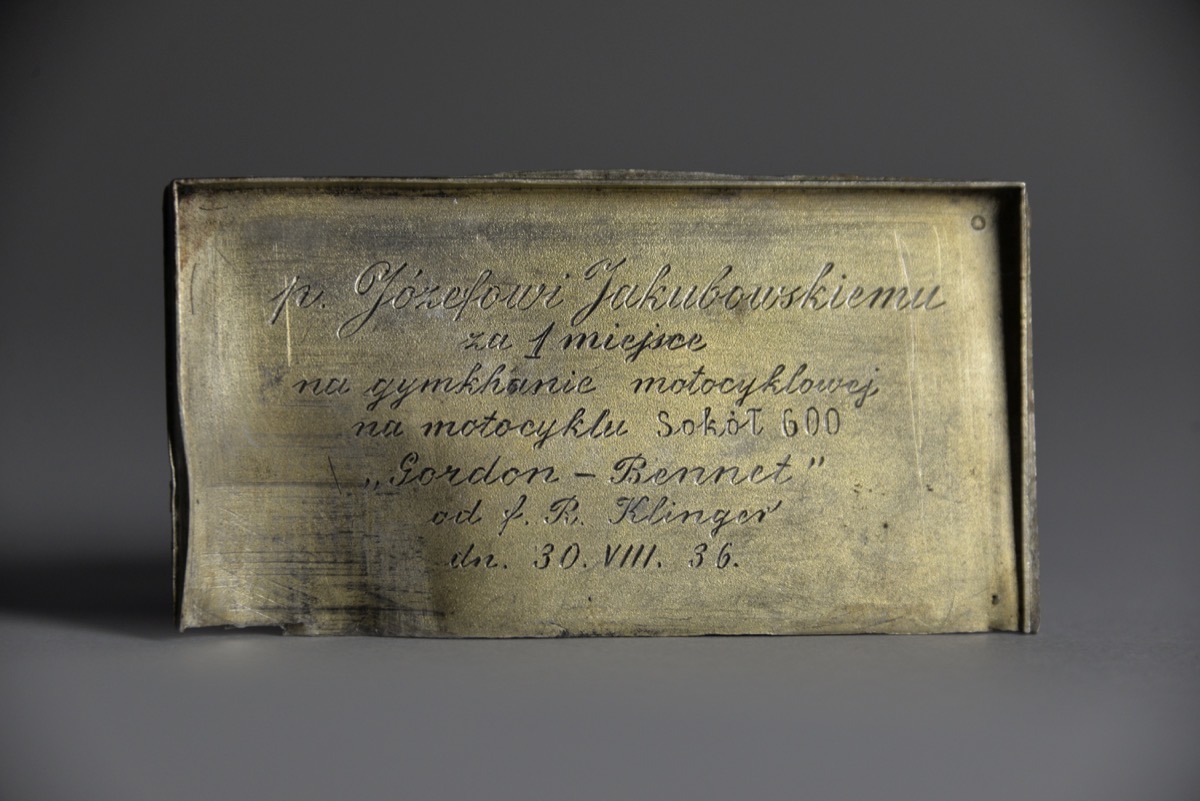 p. Józefowi Jakubowskiemu
za 1 miejsce
na gymkhanie motocyklowej
na motocyklu Sokół 600
„Gordon – Bennet"
od f. R. Klinger
dn. 30. VIII. 36.